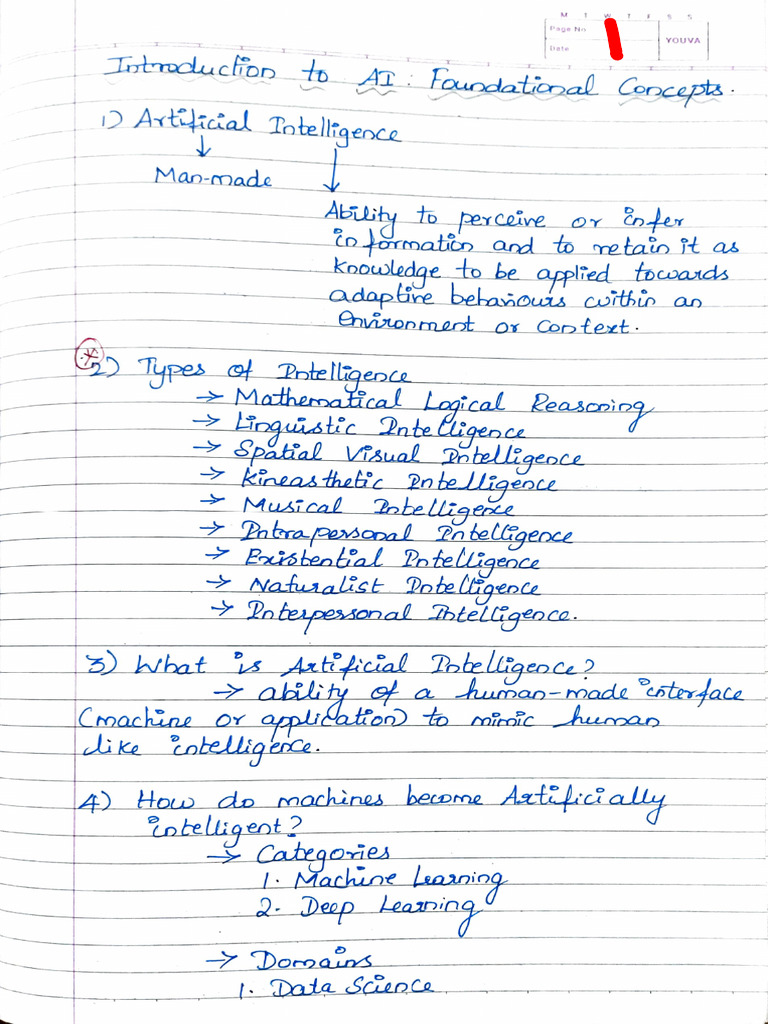 M T W T F S S
Page No
Date
YOUVA
1
Introduction to AI: Foundational Concepts.
1) Artificial Intelligence
Man-made
Ability to perceive or infer
information and to retain it as
knowledge to be applied towards
adaptive behaviours within an
environment or context.
*
2) Types of Intelligence
→ Mathematical Logical Reasoning
→ Linguistic Intelligence
→ Spatial Visual Intelligence
→ Kineasthetic Intelligence
→ Musical Intelligence
→ Intrapersonal Intelligence
→ Existential Intelligence
→ Naturalist Intelligence
→ Interpersonal Intelligence.
3) What is Artificial Intelligence?
→ ability of a human-made interface
(machine or application) to mimic human
like intelligence.
4) How do machines become Artificially
intelligent?
→ Categories
1. Machine Learning
2. Deep Learning
→ Domains
1. Data Science